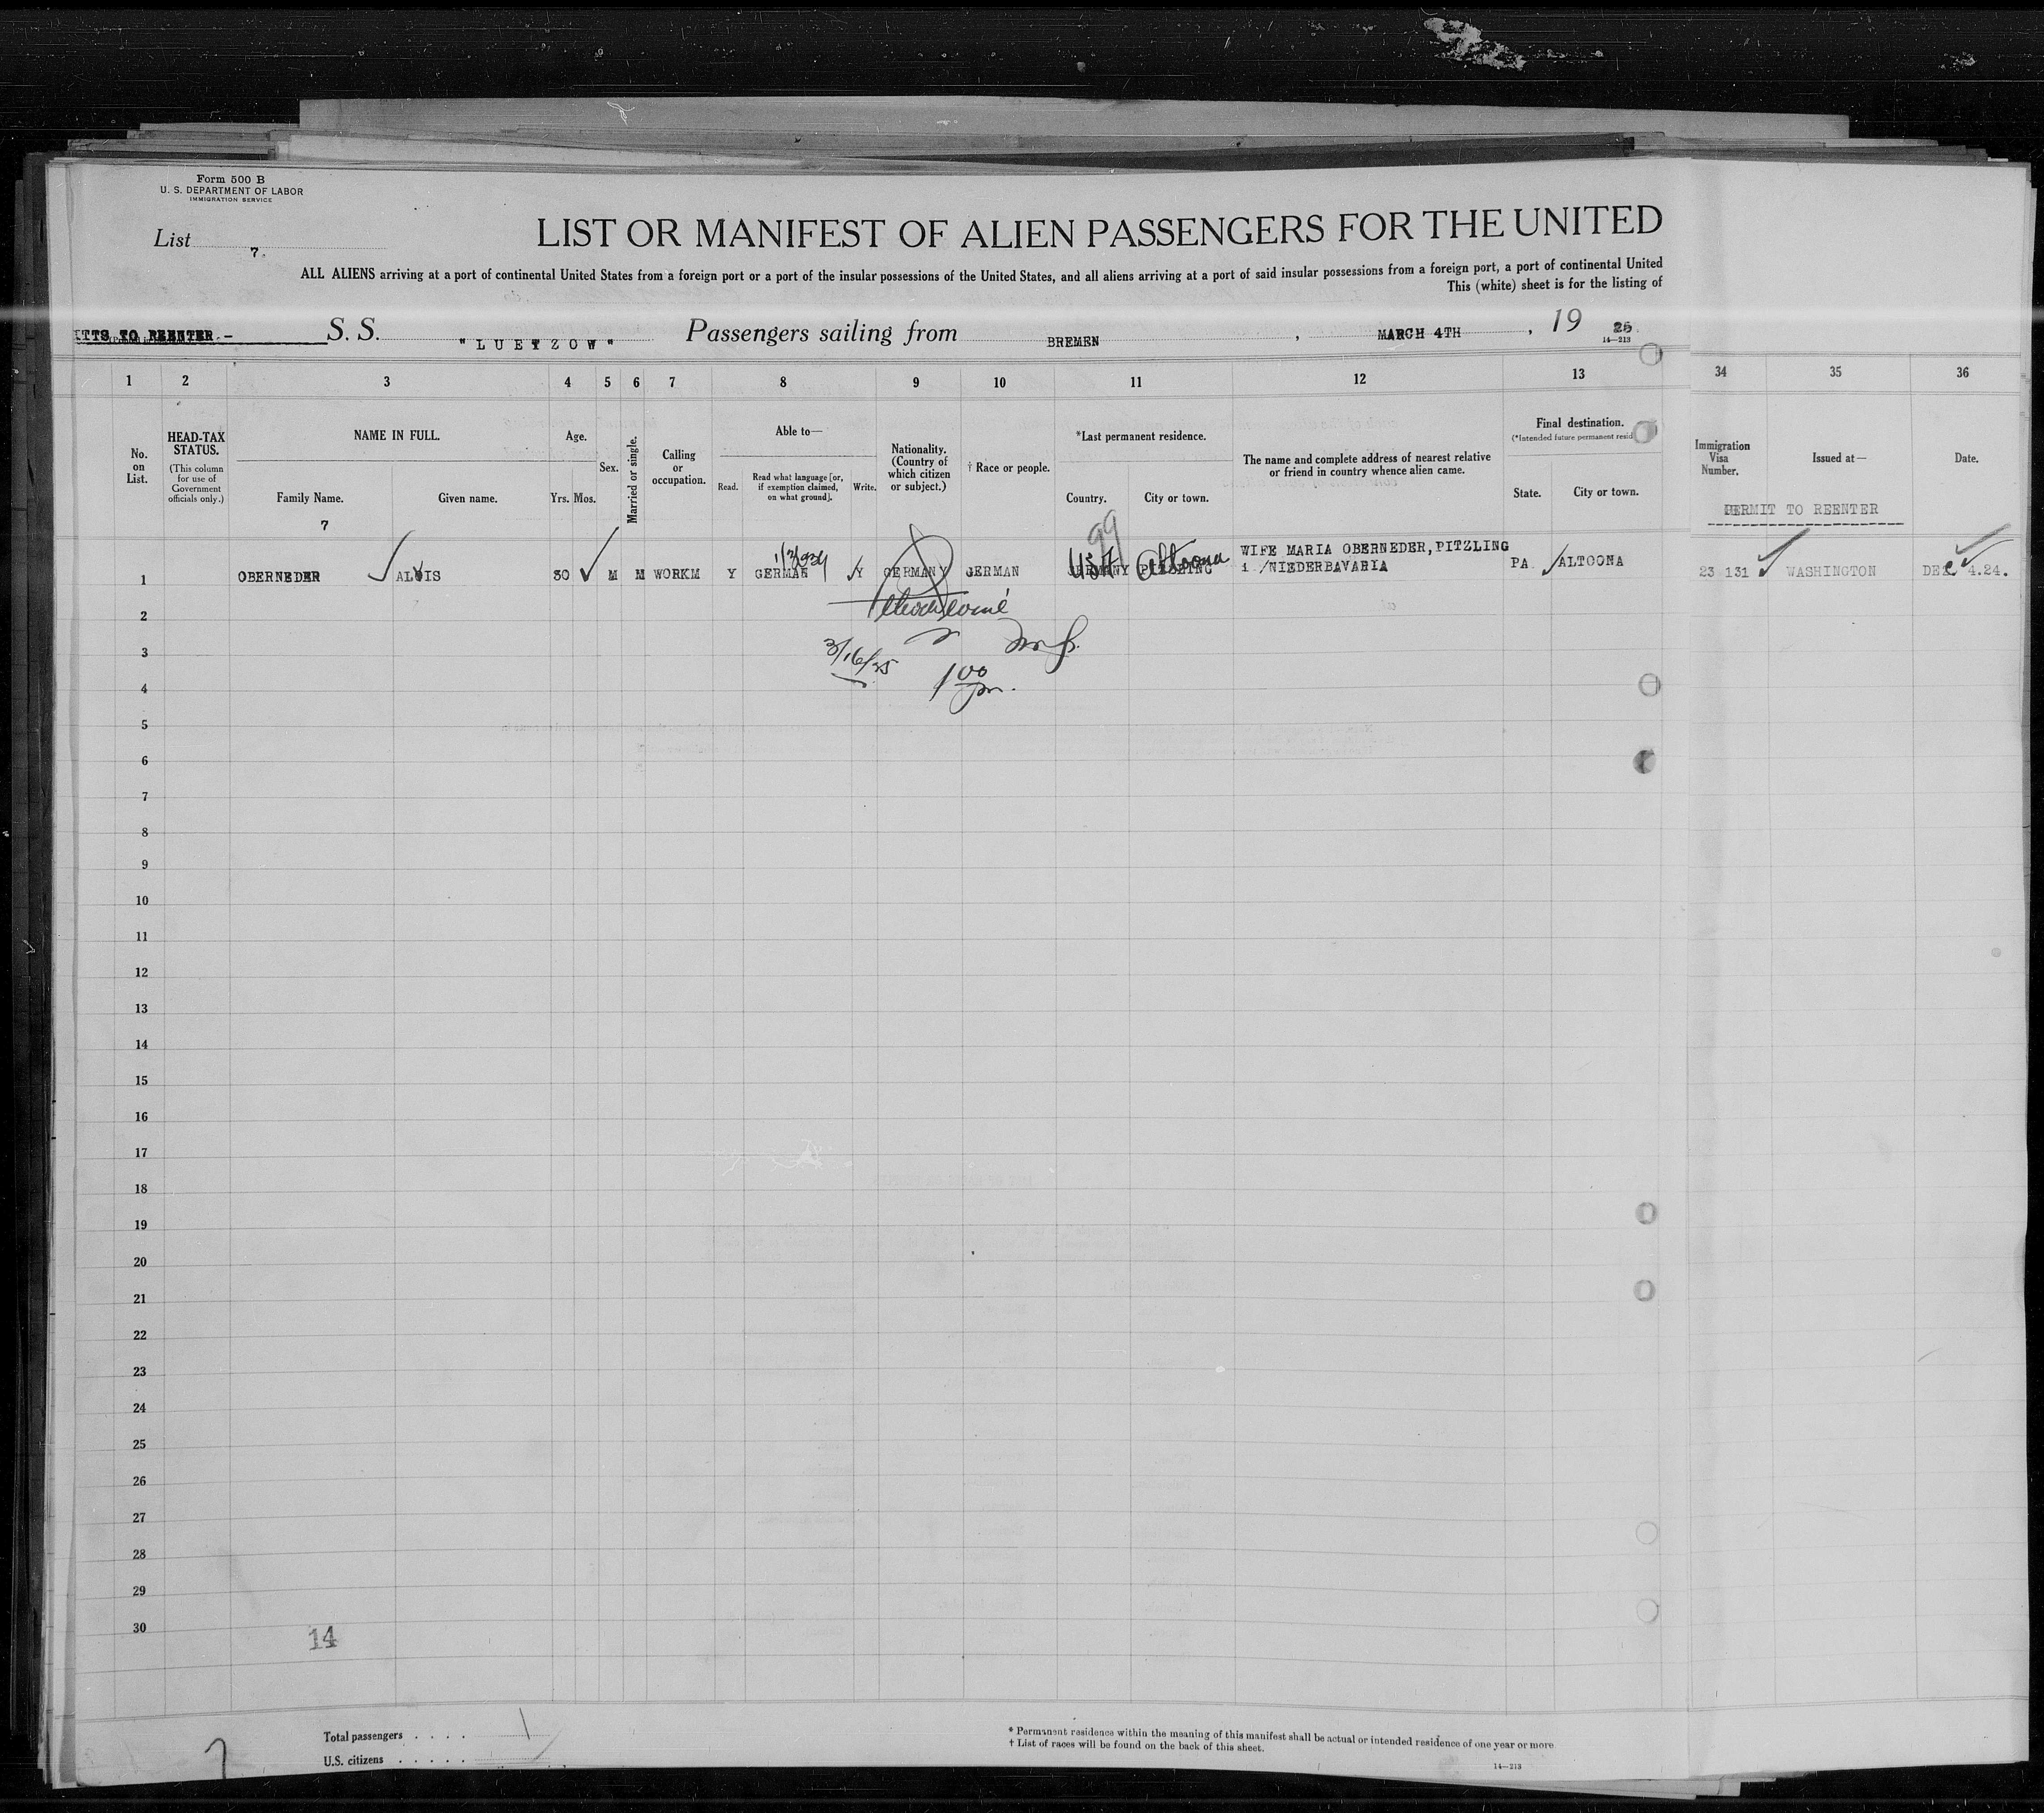 Form 500 B
U. S. DEPARTMENT OF LABOR
IMMIGRATION SERVICE
List 7.
LIST OR MANIFEST OF ALIEN PASSENGERS FOR THE UNITED
ALL ALIENS arriving at a port of continental United States from a foreign port or a port of the insular possessions of the United States, and all aliens arriving at a port of said insular possessions from a foreign port, a port of continental United
This (white) sheet is for the listing of
TO REENTER - S. S. "LUETZOW" Passengers sailing from BREMEN , MARCH 4TH , 19 25
14—213
1 2 3 4 5 6 7 8 9 10 11 12 13 34 35 36
No. on List.
HEAD-TAX STATUS.
(This column for use of Government officials only.)
NAME IN FULL.
Family Name. Given name.
7
Age.
Yrs. Mos.
Sex.
Married or single.
Calling or occupation.
Able to—
Read. Read what language [or, if exemption claimed, on what ground]. Write.
Nationality. (Country of which citizen or subject.)
† Race or people.
*Last permanent residence.
Country. City or town.
The name and complete address of nearest relative or friend in country whence alien came.
Final destination.
(*Intended future permanent resid
State. City or town.
Immigration Visa Number.
Issued at—
Date.
PERMIT TO REENTER
99
1 OBERNEDER ALOIS 30 M M WORKM Y GERMAN Y GERMANY GERMAN USA Altoona WIFE MARIA OBERNEDER,PITZLING
NIEDERBAVARIA PA ALTOONA 23 131 WASHINGTON DEC 4.24.
2
3
3/16/25
4
1 00 pm.
5
6
7
8
9
10
11
12
13
14
15
16
17
18
19
20
21
22
23
24
25
26
27
28
29
30
14
Total passengers . . . . 1
U.S. citizens . . . . .
7
* Permanent residence within the meaning of this manifest shall be actual or intended residence of one year or more
† List of races will be found on the back of this sheet.
14—213